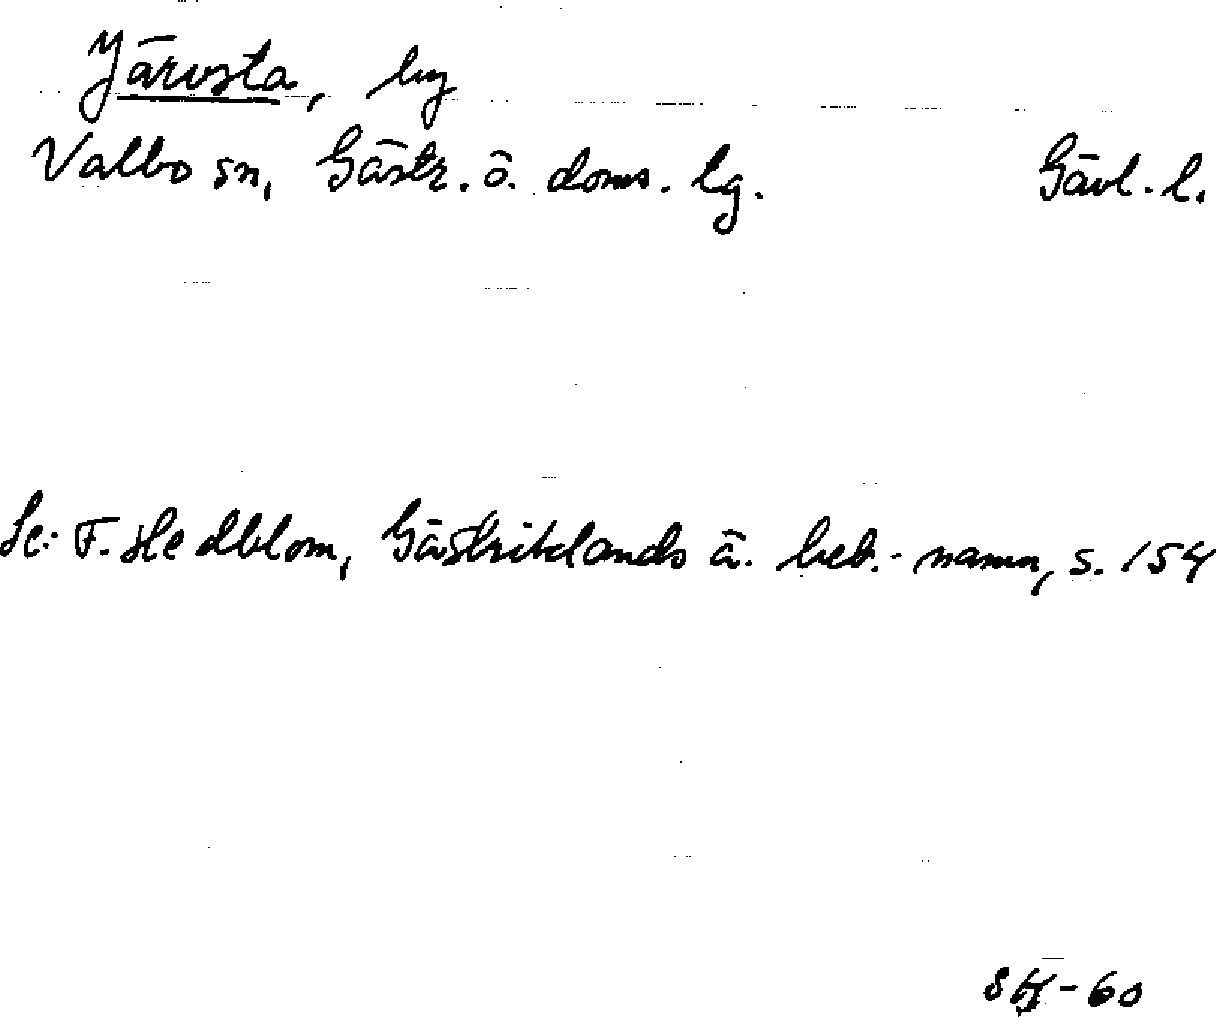 Järvsta, by
Valbo sn, Gästr. ö. doms. lg. Gävl. l.
Se: F. Hedblom, Gästriklands ä. beb.- namn, s. 154
-60